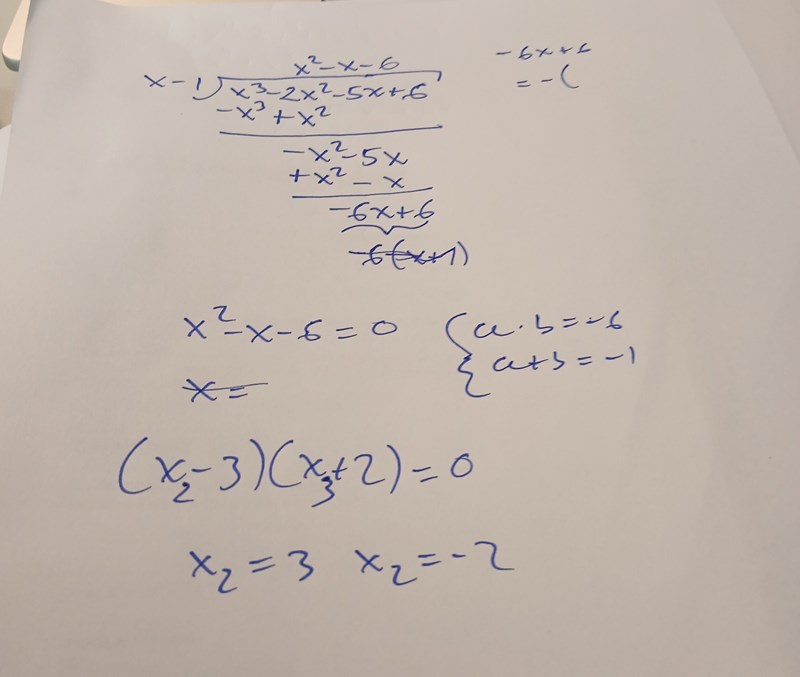 x²-x-6
x-1 ) x³-2x²-5x+6
-x³+x²
-x²-5x
+x²-x
-6x+6
-6(x+1)
-6x+6
= -(
x²-x-6=0
x=
{ a·b=-6
a+b=-1
(x₂-3)(x₃+2)=0
x₂=3 x₂=-2